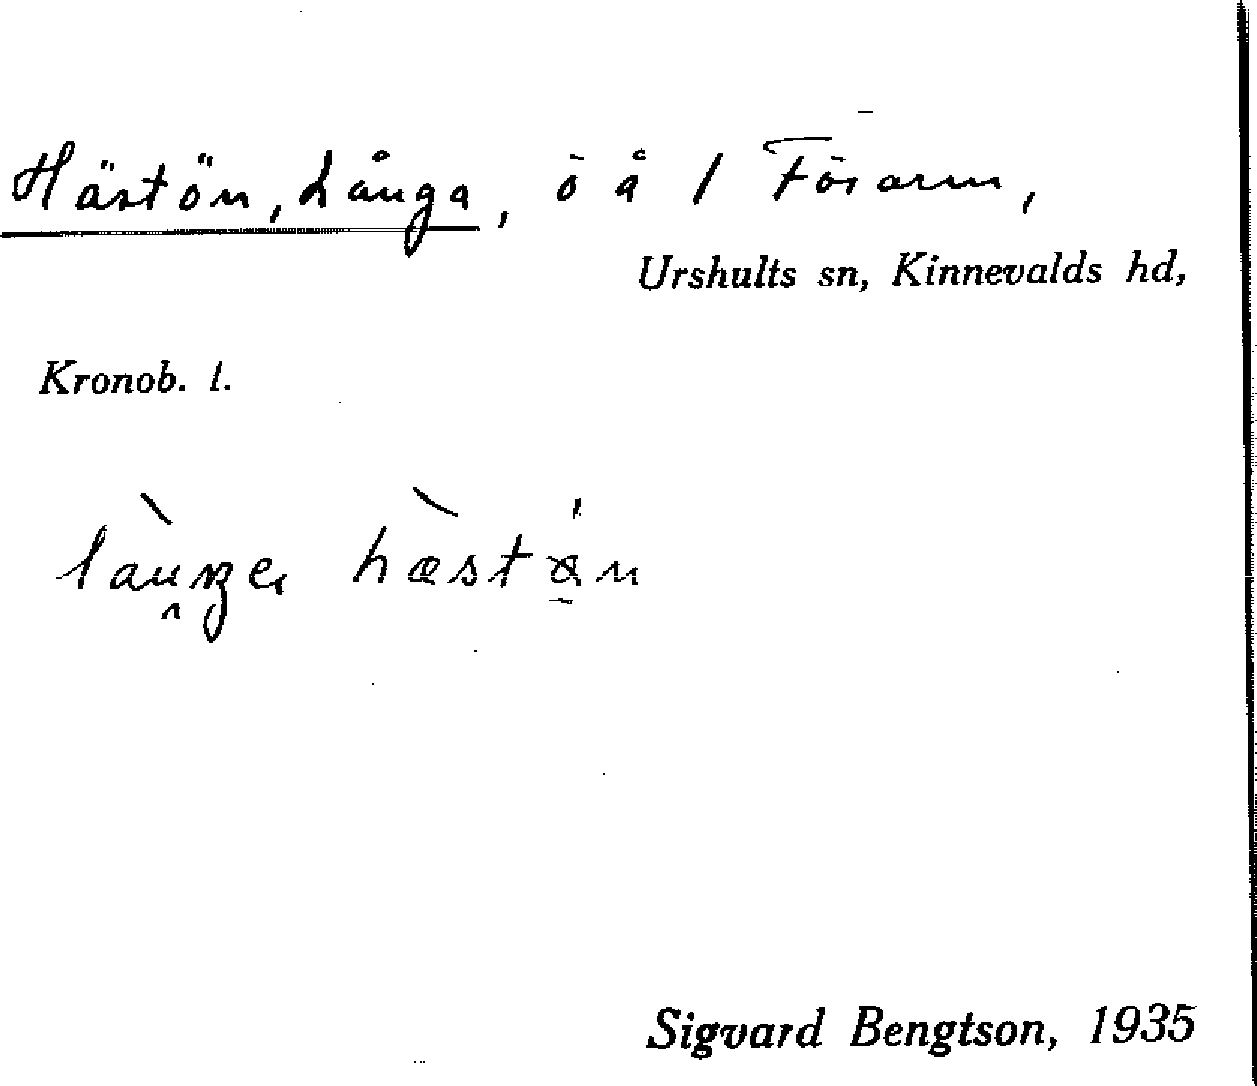 Hästön, Långa, ö å 1 Försarm,
Urshults sn, Kinnevalds hd,
Kronob. l.
hæst
Sigvard Bengtson, 1935